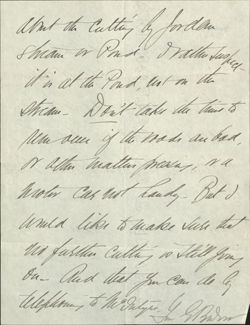 about the cutting by Jordan
Stream or Pond. I rather suspect
it is at the Pond, not on the
Stream. Don't take the time to
run over if the roads are bad,
or other matters pressing, or a
motor car not handy. But I
would like to make sure that
no further cutting is still going
on. And that you can do by
telephoning to McIntyre.